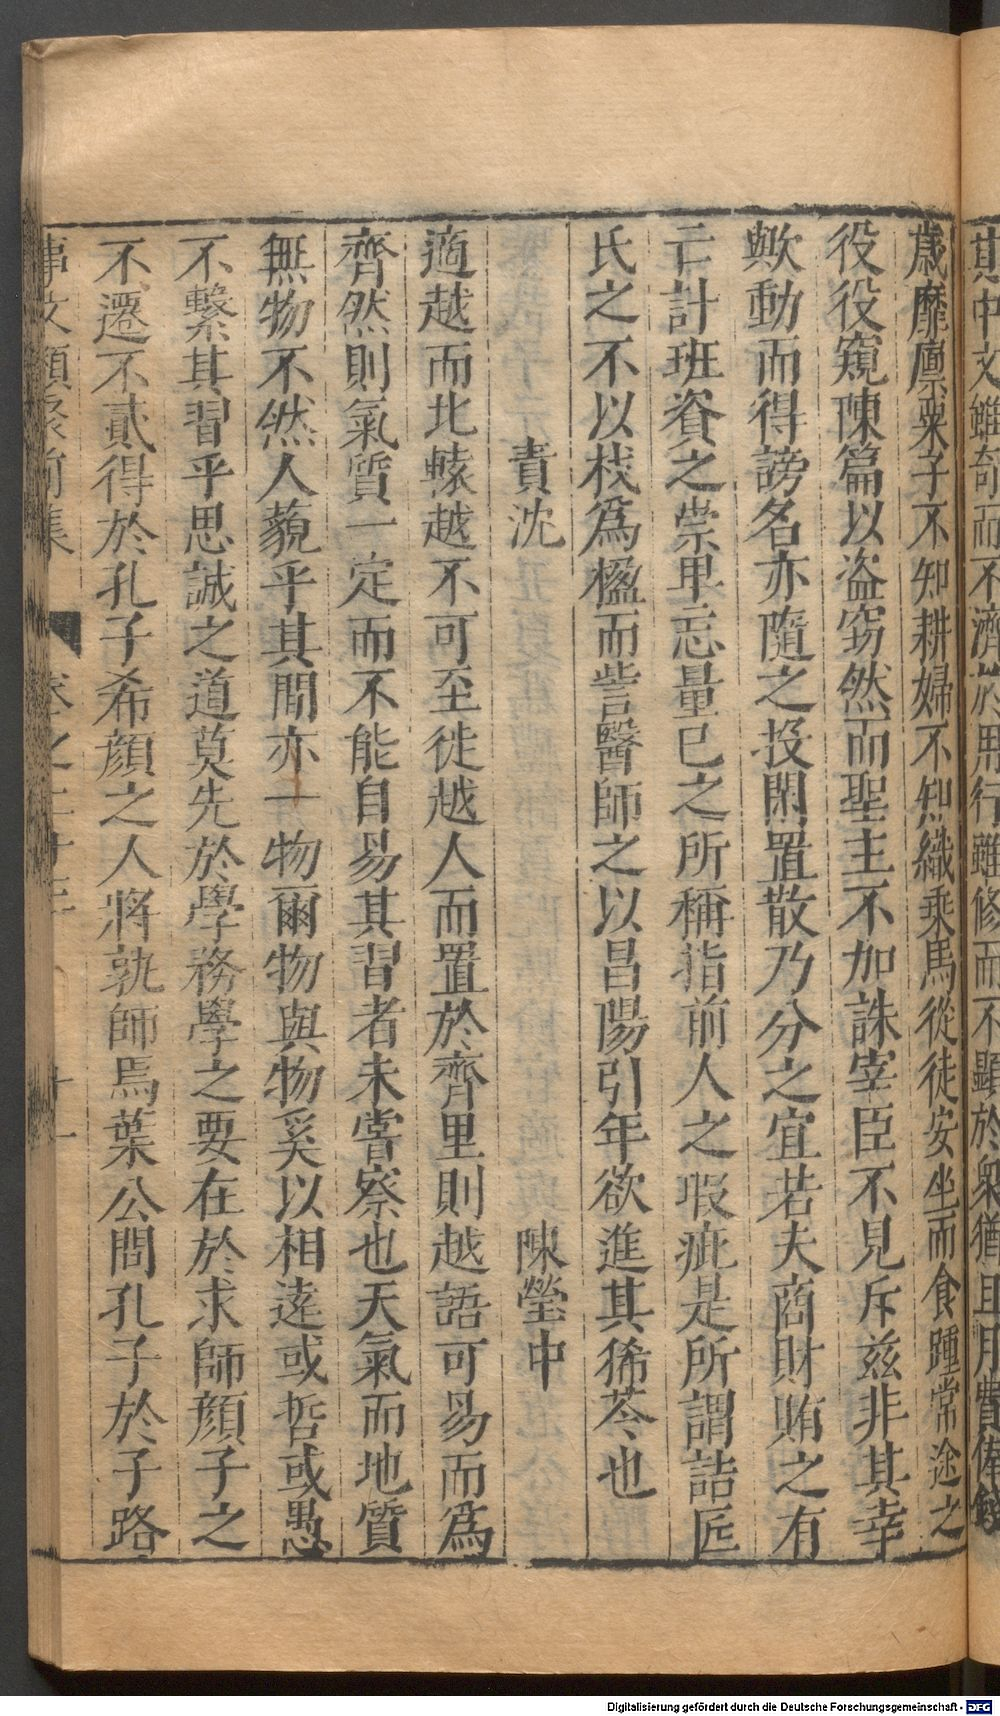 其中文雖奇而不濟於用行雖修而不顯於衆猶且月費俸錢
歲靡廩粟子不知耕婦不知織乘馬從徒安坐而食踵常途之
役役窺陳篇以盗竊然而聖主不加誅宰臣不見斥兹非其幸
歟動而得謗名亦隨之投閑置散乃分之宜若夫商財賄之有
亡計班資之崇卑忘量已之所稱指前人之瑕疵是所謂詰匠
氏之不以杙爲楹而訾醫師之以昌陽引年欲進其狶苓也
責沈 陳瑩中
適越而北轅越不可至徙越人而置於齊里則越語可易而爲
齊然則氣質一定而不能自易其習者未嘗察也天氣而地質
無物不然人藐乎其間亦一物爾物與物奚以相逺或哲或愚
不繫其習乎思誠之道莫先於學務學之要在於求師顔子之
不遷不貳得於孔子希顔之人將孰師焉葉公問孔子於子路
事文類聚前集 卷之二十三 十一
Digitalisierung gefördert durch die Deutsche Forschungsgemeinschaft - DFG